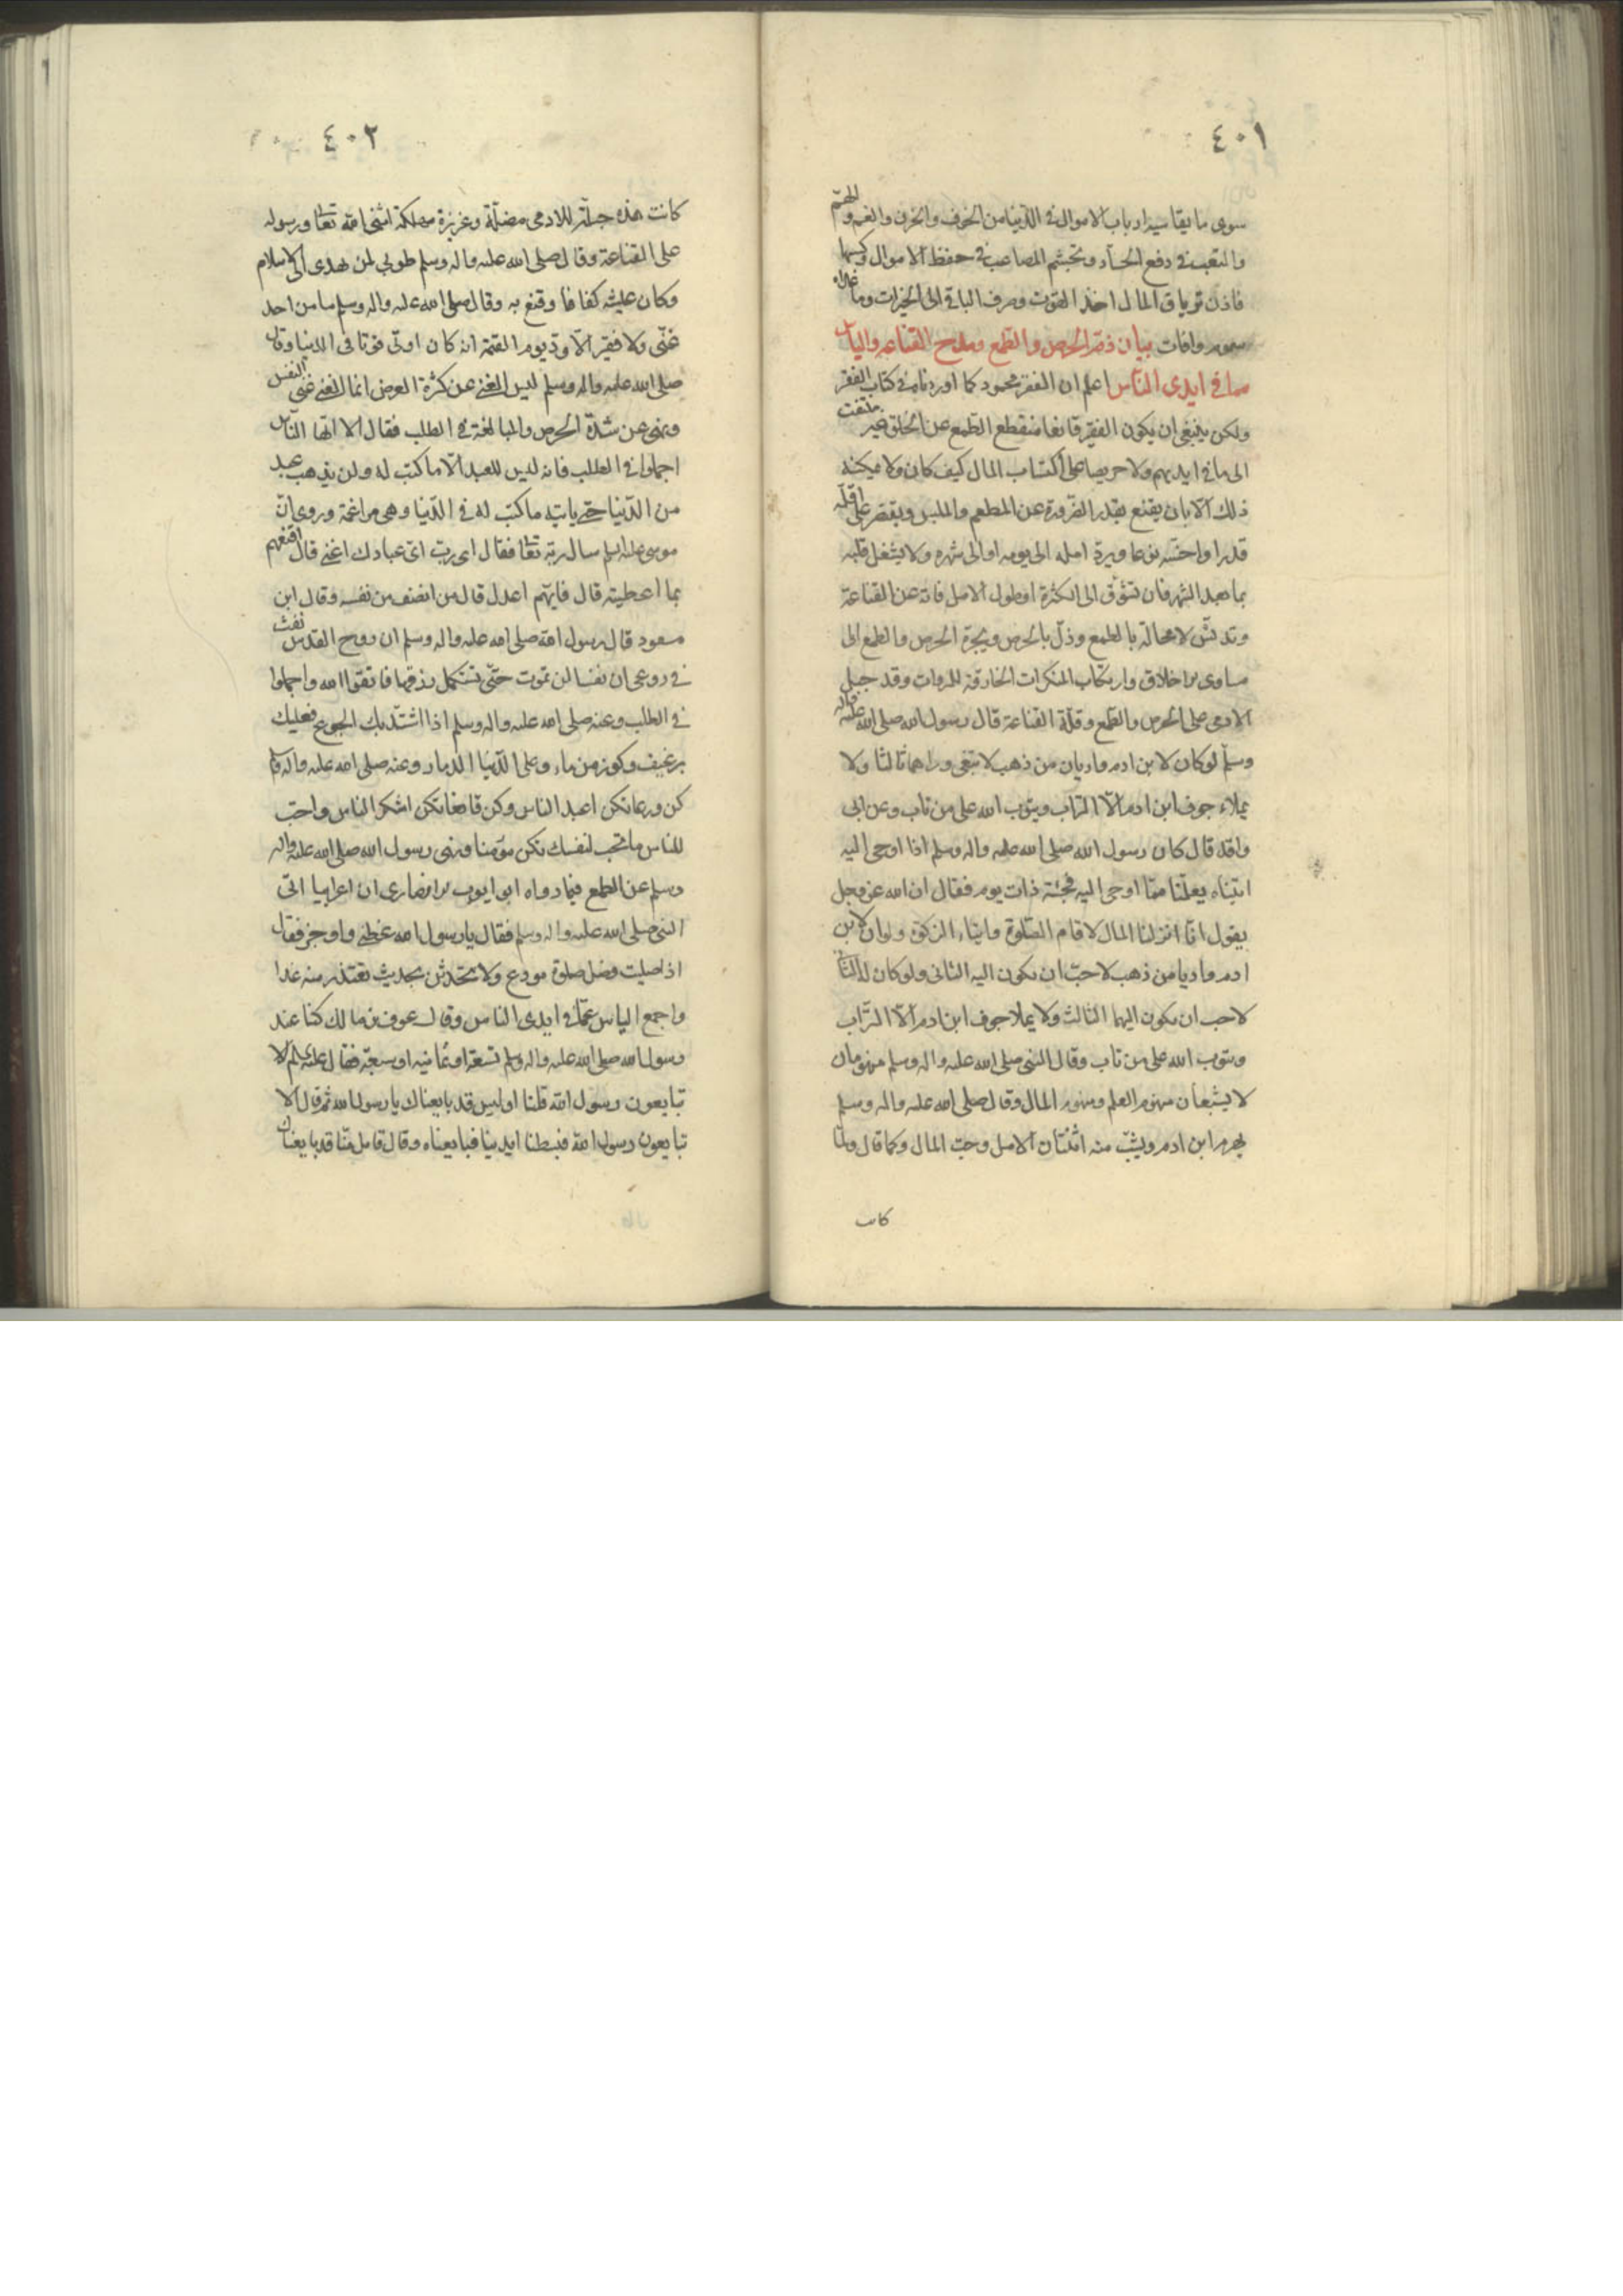 ٤٠١
سوى ما يقاسيه ارباب الاموال في الدنيا من الخوف والحزن والغم والهم
والتعب في دفع الحساد وتجشم المصاعب في حفظ الاموال وكسبها
فاذن ترياق المال اخذ القوت وصرف الباقي الى الخيرات وما عداه
سموم وافات بيان ذم الحرص والطمع ومدح القناعة والياس
مما في ايدى الناس اعلم ان الفقر محمود كما اوردناه في كتاب الفقر
ولكن ينبغى ان يكون الفقير قانعا منقطع الطمع عن الخلق غير ملتفت
الى ما في ايديهم ولا حريصا على اكتساب المال كيف كان ولا يمكنه
ذلك الا بان يقنع بقدر الضرورة عن المطعم والملبس ويقتصر على اقله
قدرا واخسه نوعا ويرد امله الى يومه او الى شهره ولا يشغل قلبه
بما بعد الشهر فان تشوق الى الكثرة او طول الامل فاته عن القناعة
وتدنس لا محالة بالطمع وذل بالحرص ويجره الحرص والطمع الى
مساوى الاخلاق وارتكاب المنكرات الخارقة للمروات وقد جبل
الادمى على الحرص والطمع وقلة القناعة قال رسول الله صلى الله عليه واله
وسلم لو كان لابن ادم واديان من ذهب لابتغى وراهما ثالثا ولا
يملاء جوف ابن ادم الا التراب ويتوب الله على من تاب وعن ابى
واقد قال كان رسول الله صلى الله عليه واله وسلم اذا اوحى اليه
اتيناه يعلمنا مما اوحى اليه فجئته ذات يوم فقال ان الله عز وجل
يقول انا انزلنا المال لاقام الصلوة وايتاء الزكوة ولو ان لابن
ادم واديا من ذهب لاحب ان يكون اليه الثانى ولو كان له الثانى
لاحب ان يكون اليهما الثالث ولا يملا جوف ابن ادم الا التراب
ويتوب الله على من تاب وقال النبى صلى الله عليه واله وسلم منهومان
لا يشبعان منهوم العلم ومنهوم المال وقال صلى الله عليه واله وسلم
يهرم ابن ادم ويشب منه اثنتان الامل وحب المال وكما قال ولما
كانت
٤٠٢
كانت هذه جبلة للادمى مضلة وغريزة مهلكة اثنى الله تعالى ورسوله
على القناعة وقال صلى الله عليه واله وسلم طوبى لمن هدى الى الاسلام
وكان عيشه كفافا وقنع به وقال صلى الله عليه واله وسلم ما من احد
غنى ولا فقير الا ود يوم القيمة انه كان اوتى قوتا في الدنيا وقال
صلى الله عليه واله وسلم ليس الغنى عن كثرة العرض انما الغنى غنى النفس
ونهى عن شدة الحرص والمبالغة في الطلب فقال الا ايها الناس
اجملوا في الطلب فانه ليس للعبد الا ما كتب له ولن يذهب عبد
من الدنيا حتى ياتيه ما كتب له في الدنيا وهى مراغمة وروى ان
موسى عليه السلم سال ربه تعالى فقال اى رب اى عبادك اغنى قال اقنعهم
بما اعطيته قال فايهم اعدل قال من انصف من نفسه وقال ابن
مسعود قال رسول الله صلى الله عليه واله وسلم ان روح القدس نفث
في روعى ان نفسا لن تموت حتى تستكمل رزقها فاتقوا الله واجملوا
في الطلب وعنه صلى الله عليه واله وسلم اذا اشتد بك الجوع فعليك
برغيف وكوز من ماء وعلى الدنيا الدمار وعنه صلى الله عليه واله وسلم
كن ورعا تكن اعبد الناس وكن قانعا تكن اشكر الناس واحب
للناس ما تحب لنفسك تكن مؤمنا ونهى رسول الله صلى الله عليه واله
وسلم عن الطمع فيما رواه ابو ايوب الانصارى ان اعرابيا اتى
النبى صلى الله عليه واله وسلم فقال يا رسول الله عظنى واوجز فقال
اذا صليت فصل صلوة مودع ولا تحدثن بحديث تعتذر منه غدا
واجمع الياس عما في ايدى الناس وقال عوف بن مالك كنا عند
رسول الله صلى الله عليه واله وسلم تسعة او ثمانيه او سبعة فقال عليه السلم الا
تبايعون رسول الله قلنا اوليس قد بايعناك يا رسول الله ثم قال الا
تبايعون رسول الله فبسطنا ايدينا فبايعناه وقال قائل منا قد بايعناك